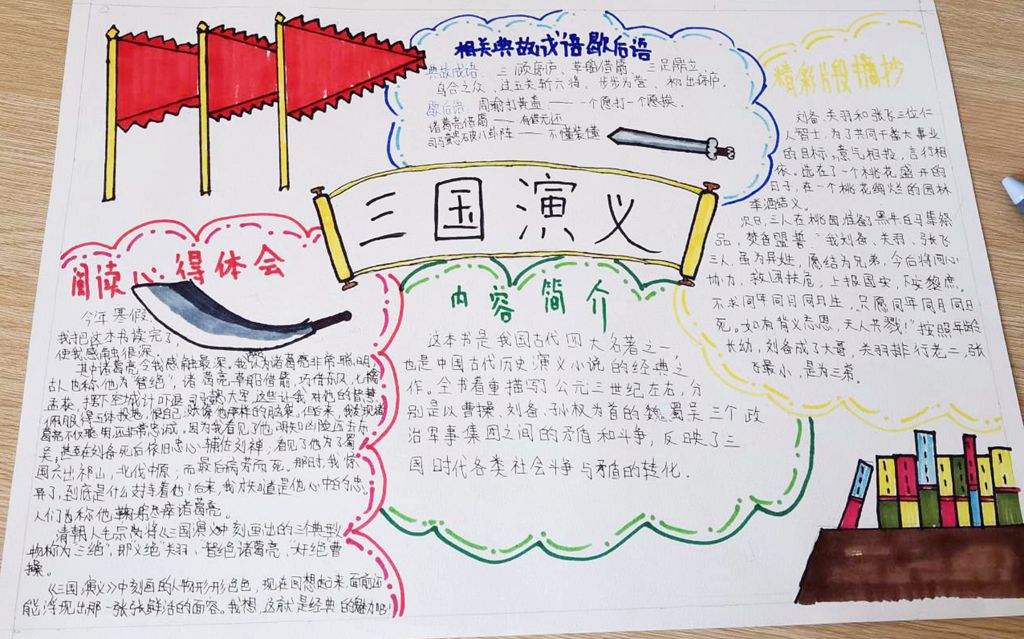 三国演义
相关典故成语歇后语
典故成语：三顾茅庐、草船借箭、三足鼎立、
乌合之众、过五关斩六将、步步为营、初出茅庐
歇后语：周瑜打黄盖——一个愿打一个愿挨.
诸葛亮借箭——有借无还
司马懿破八卦阵——不懂装懂
精彩片段摘抄
刘备、关羽和张飞三位仁
人智士，为了共同干番大事业
的目标，意气相投，言行相
依。选在了一个桃花盛开的
日子，在一个桃花绚烂的园林
举酒结义。
次日，三人在桃园准备了黑牛白马集祭
品，焚香盟誓："我刘备、关羽、张飞
三人，虽为异姓，愿结为兄弟，今后将同心
协力，救困扶危；上报国安，下安黎庶。
不求同年同月同日生，只愿同年同月同日
死。如有背义忘恩，天人共戮！"按照年龄
长幼，刘备成了大哥，关羽排行老二，张
飞最小，是为三弟。
阅读心得体会
今年寒假
我把这本书读完了，
使我感触很深。
其中诸葛亮令我感触最深。我认为诸葛亮非常聪明，
古人也称他为"智绝"，诸葛亮草船借箭，巧借东风，七擒
孟获，摆下空城计吓退司马懿大军这些让我对他的智慧
佩服得五体投地，
国六出祁山，北伐中原；而最后病若而死。那时，我惊
异了，到底是什么支持着他？后来，我才知道是他心中的忠。
人们皆称他鞠躬尽瘁诸葛亮。
清朝人毛宗岗将《三国演义》中刻画出的三个典型人
物称为"三绝"，那义绝关羽，智绝诸葛亮，奸绝曹
操。
《三国演义》中刻画的人物形形色色，现在回想起来，面前还
能浮现出那一张张鲜活的面容。我想，这就是经典的魅力吧！
内容简介
这本书是我国古代四大名著之一
也是中国古代历史演义小说的经典之
作。全书着重描写了公元三世纪左右，分
别是以曹操、刘备、孙权为首的魏、蜀吴三个政
治军事集团之间的矛盾和斗争，反映了三
国时代各类社会斗争与矛盾的转化.